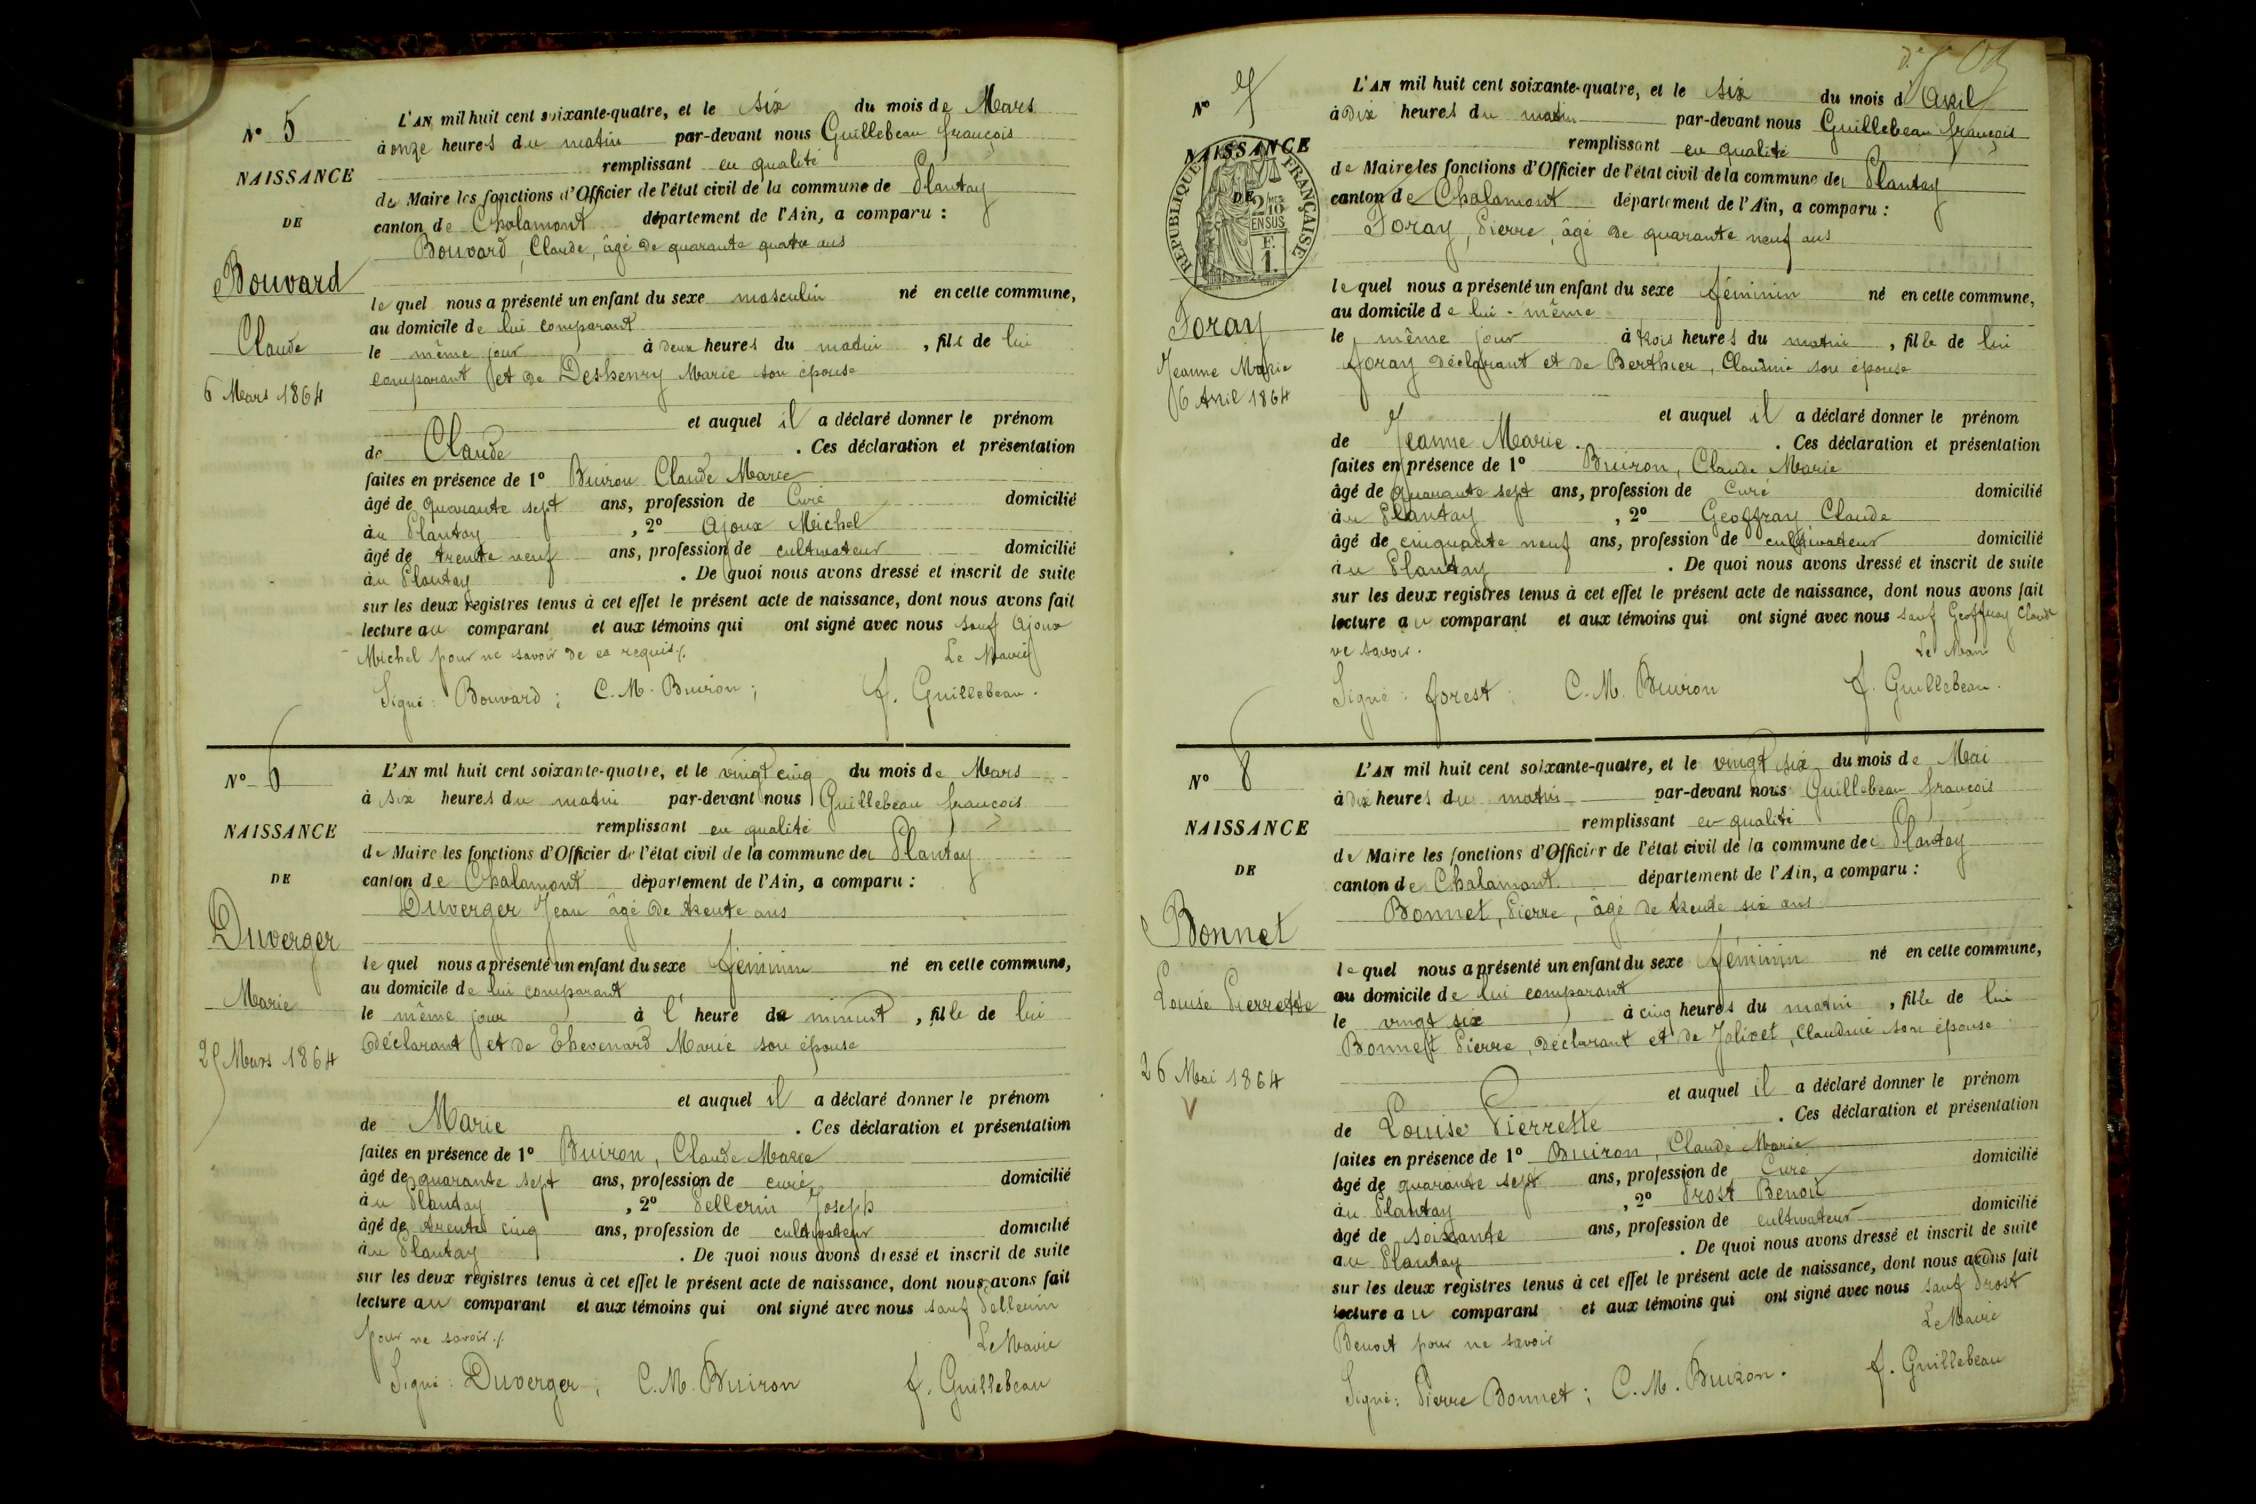 N° 5
NAISSANCE
DE
Bouvard
Claude
6 Mars 1864
L'AN mil huit cent soixante-quatre, et le six du mois de Mars
à onze heures du matin par-devant nous Guillebeau françois
remplissant en qualité
de Maire les fonctions d'Officier de l'état civil de la commune de Plantay
canton de Chalamont département de l'Ain, a comparu :
Bouvard, Claude, âgé de quarante quatre ans
le quel nous a présenté un enfant du sexe masculin né en cette commune,
au domicile de lui comparant
le même jour à deux heures du matin , fils de lui
comparant et de Deshenry Marie son épouse
et auquel il a déclaré donner le prénom
de Claude . Ces déclaration et présentation
faites en présence de 1° Buiron Claude Marie
âgé de quarante sept ans, profession de Curé domicilié
au Plantay , 2° Ajoux Michel
âgé de trente neuf ans, profession de cultivateur domicilié
au Plantay . De quoi nous avons dressé et inscrit de suite
sur les deux registres tenus à cet effet le présent acte de naissance, dont nous avons fait
lecture au comparant et aux témoins qui ont signé avec nous sauf Ajoux
Michel pour ne savoir de ce requis ./.
Le Maire
Signé : Bouvard ; C. M. Buiron ; f. Guillebeau .
N° 6
NAISSANCE
DE
Duverger
Marie
25 Mars 1864
L'AN mil huit cent soixante-quatre, et le vingt cinq du mois de Mars
à six heures du matin par-devant nous Guillebeau françois
remplissant en qualité
de Maire les fonctions d'Officier de l'état civil de la commune de Plantay
canton de Chalamont département de l'Ain, a comparu :
Duverger Jean âgé de trente ans
le quel nous a présenté un enfant du sexe féminin né en cette commune,
au domicile de lui comparant
le même jour à l' heure de minuit , fille de lui
déclarant et de Thevenard Marie son épouse
et auquel il a déclaré donner le prénom
de Marie . Ces déclaration et présentation
faites en présence de 1° Buiron, Claude Marie
âgé de quarante sept ans, profession de curé domicilié
au Plantay , 2° Pellerin Joseph
âgé de trente cinq ans, profession de cultivateur domicilié
au Plantay . De quoi nous avons dressé et inscrit de suite
sur les deux registres tenus à cet effet le présent acte de naissance, dont nous avons fait
lecture au comparant et aux témoins qui ont signé avec nous sauf Pellerin
pour ne savoir ./.
Le Maire
Signé : Duverger , C. M. Buiron f. Guillebeau
N° 7
NAISSANCE
DE
RÉPUBLIQUE FRANÇAISE
2/10 EN SUS
F.
1.
Foray
Jeanne Marie
6 Avril 1864
L'AN mil huit cent soixante-quatre, et le six du mois d' Avril
à dix heures du matin par-devant nous Guillebeau françois
remplissant en qualité
de Maire les fonctions d'Officier de l'état civil de la commune de Plantay
canton de Chalamont département de l'Ain, a comparu :
Foray, Pierre, âgé de quarante neuf ans
le quel nous a présenté un enfant du sexe féminin né en cette commune,
au domicile de lui-même
le même jour à trois heures du matin , fille de lui
foray déclarant et de Berthier, Claudine son épouse
et auquel il a déclaré donner le prénom
de Jeanne Marie . Ces déclaration et présentation
faites en présence de 1° Buiron, Claude Marie
âgé de quarante sept ans, profession de Curé domicilié
au Plantay , 2° Geoffray Claude
âgé de cinquante neuf ans, profession de cultivateur domicilié
au Plantay . De quoi nous avons dressé et inscrit de suite
sur les deux registres tenus à cet effet le présent acte de naissance, dont nous avons fait
lecture au comparant et aux témoins qui ont signé avec nous sauf Geoffray Claude
ne savoir .
Le Maire
Signé : forest ; C. M. Buiron f. Guillebeau .
N° 8
NAISSANCE
DE
Bonnet
Louise Pierrette
26 Mai 1864
L'AN mil huit cent soixante-quatre, et le vingt six du mois de Mai
à dix heures du matin par-devant nous Guillebeau françois
remplissant en qualité
de Maire les fonctions d'Officier de l'état civil de la commune de Plantay
canton de Chalamont département de l'Ain, a comparu :
Bonnet, Pierre, âgé de trente six ans
le quel nous a présenté un enfant du sexe féminin né en cette commune,
au domicile de lui comparant
le vingt six à cinq heures du matin , fille de lui
Bonnet Pierre, déclarant et de Jolivet, Claudine son épouse
et auquel il a déclaré donner le prénom
de Louise Pierrette . Ces déclaration et présentation
faites en présence de 1° Buiron, Claude Marie
âgé de quarante sept ans, profession de Curé domicilié
au Plantay , 2° Prost Benoit
âgé de soixante ans, profession de cultivateur domicilié
au Plantay . De quoi nous avons dressé et inscrit de suite
sur les deux registres tenus à cet effet le présent acte de naissance, dont nous avons fait
lecture au comparant et aux témoins qui ont signé avec nous sauf Prost
Benoit pour ne savoir
Le Maire
Signé : Pierre Bonnet ; C. M. Buiron . f. Guillebeau